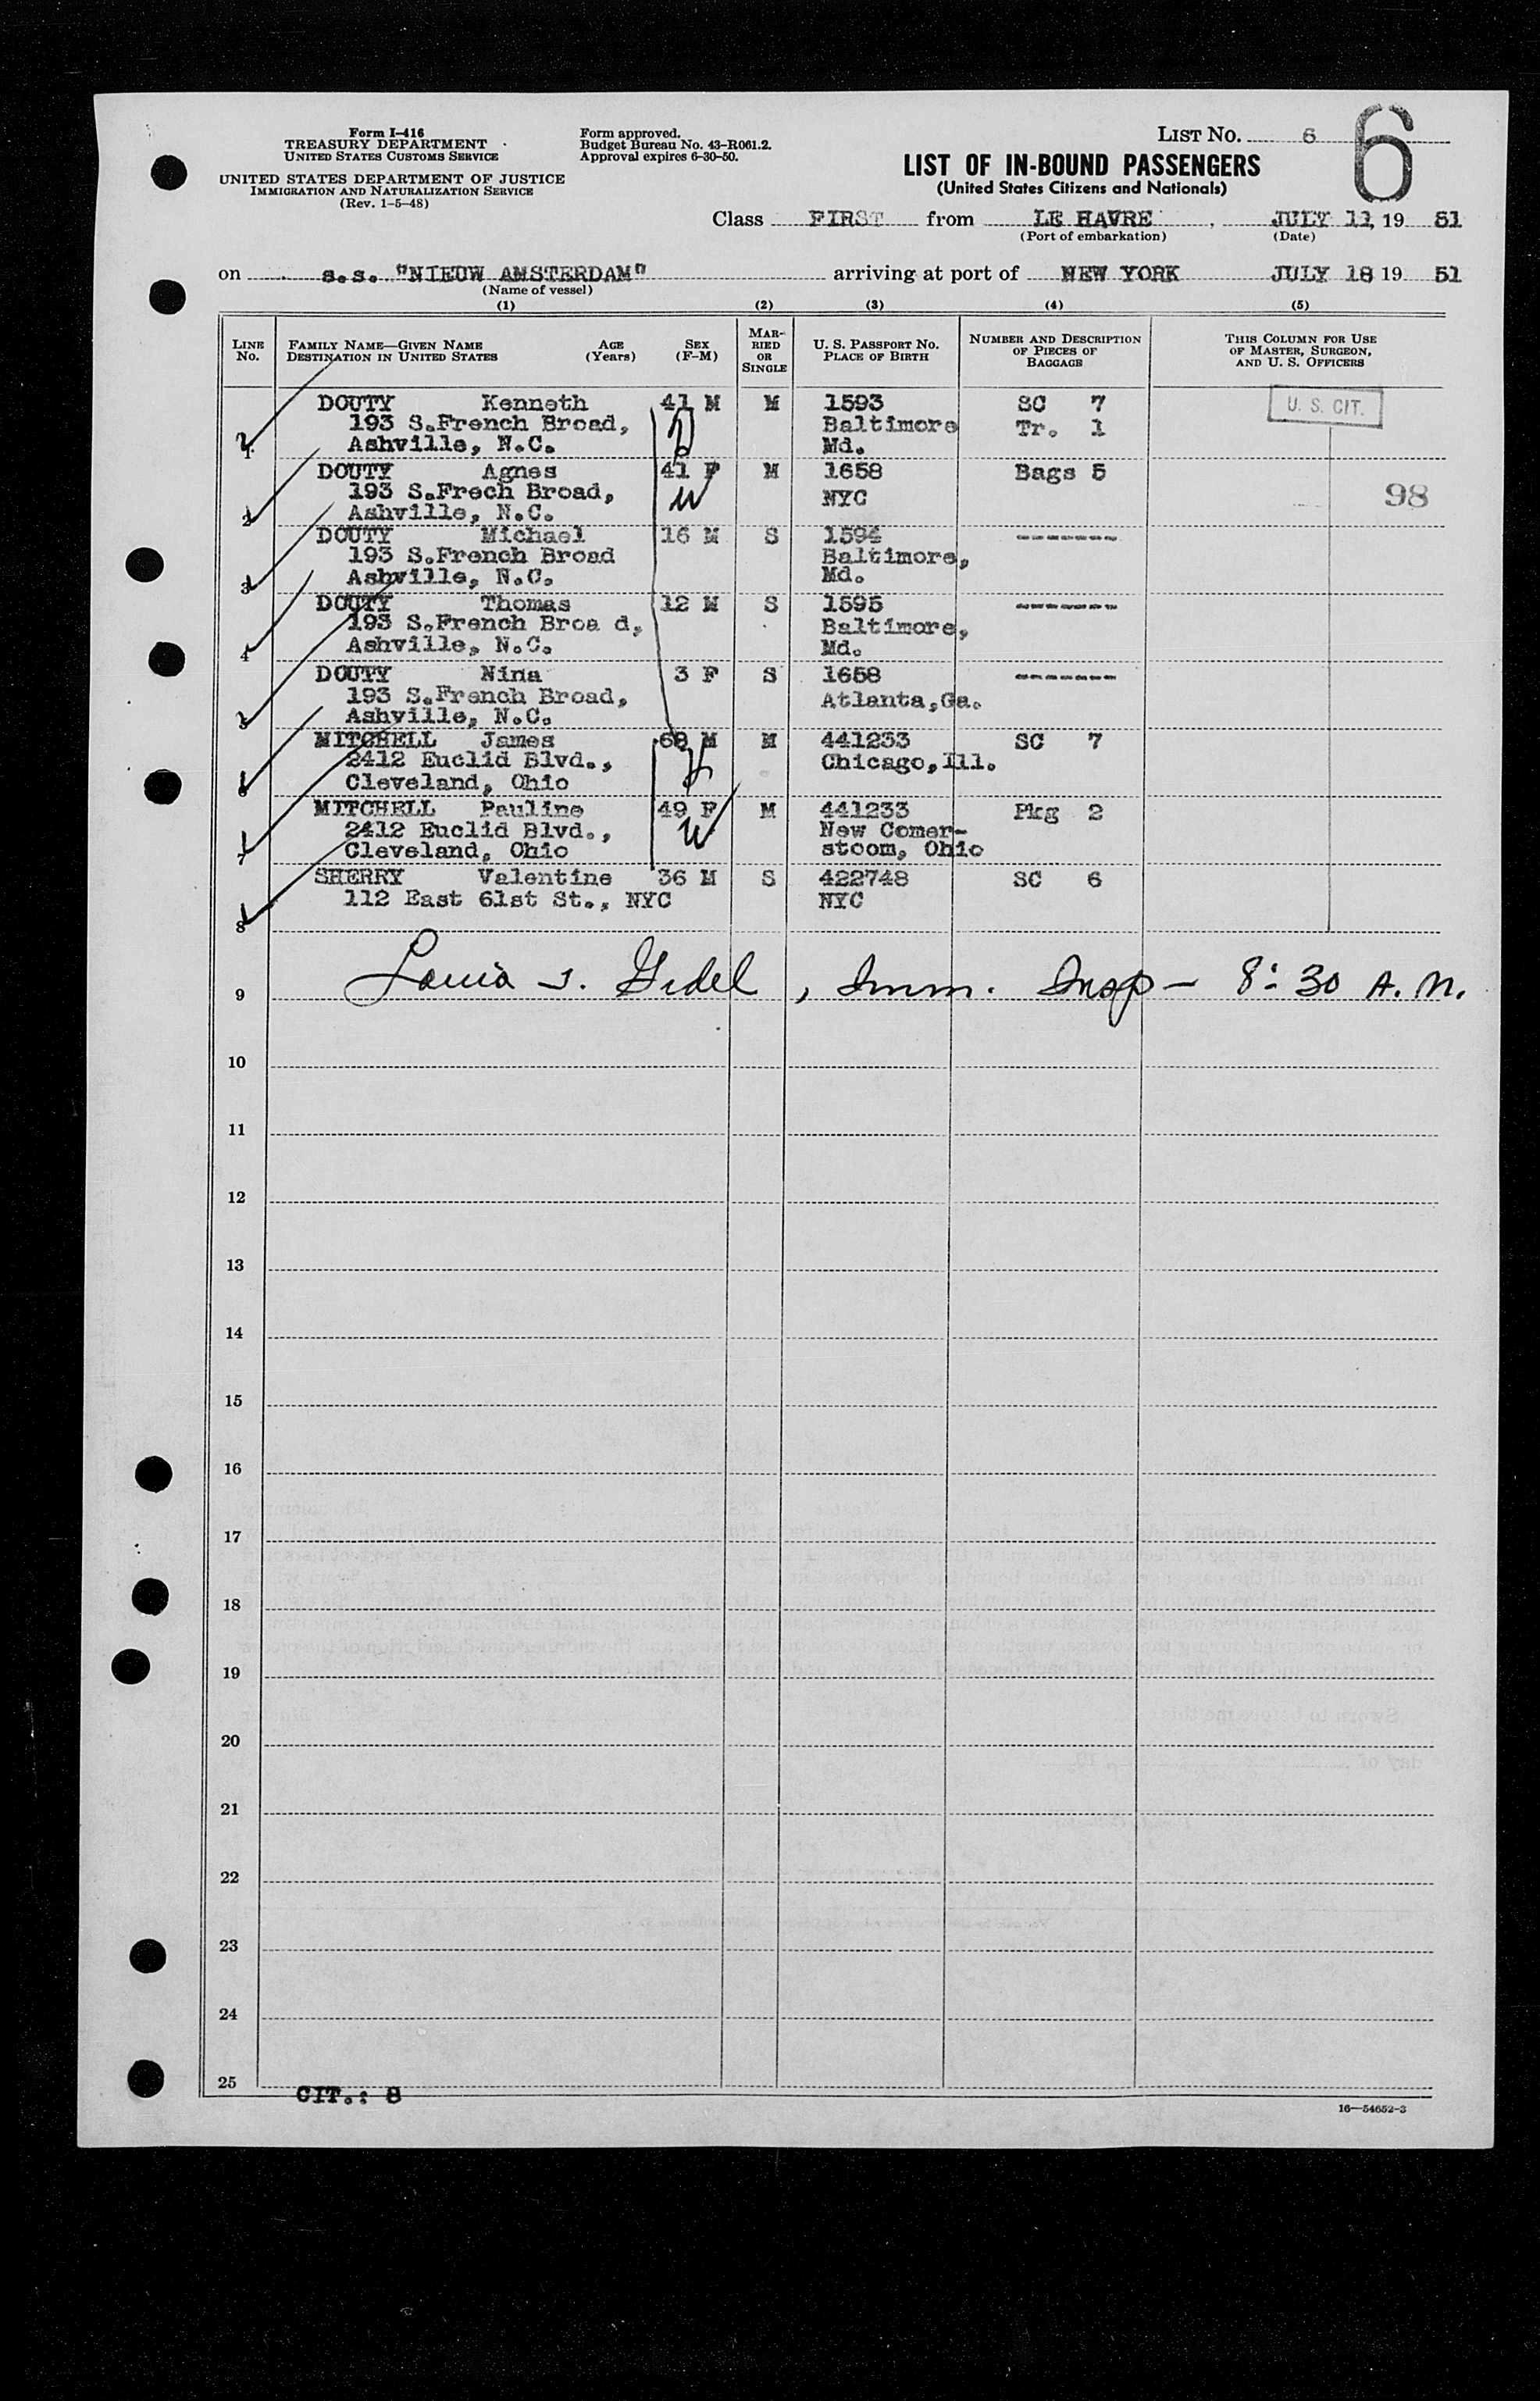 Form I-416
TREASURY DEPARTMENT
UNITED STATES CUSTOMS SERVICE
UNITED STATES DEPARTMENT OF JUSTICE
IMMIGRATION AND NATURALIZATION SERVICE
(Rev. 1-5-48)
Form approved.
Budget Bureau No. 43-R061.2.
Approval expires 6-30-50.
LIST NO. 6
6
LIST OF IN-BOUND PASSENGERS
(United States Citizens and Nationals)
Class FIRST from LE HAVRE, JULY 11, 19 51
(Port of embarkation) (Date)
on s.s. "NIEUW AMSTERDAM" arriving at port of NEW YORK JULY 18 19 51
(Name of vessel)
(1) (2) (3) (4) (5)
LINE No. FAMILY NAME—GIVEN NAME DESTINATION IN UNITED STATES AGE (Years) SEX (F-M) MARRIED OR SINGLE U. S. PASSPORT NO. PLACE OF BIRTH NUMBER AND DESCRIPTION OF PIECES OF BAGGAGE THIS COLUMN FOR USE OF MASTER, SURGEON, AND U. S. OFFICERS
DOUTY Kenneth 41 M M 1593 SC 7 U. S. CIT.
193 S.French Broad, Baltimore Tr. 1
1 Ashville, N.C. Md.
DOUTY Agnes 41 F M 1658 Bags 5
193 S.Frech Broad, NYC 98
2 Ashville, N.C.
DOUTY Michael 16 M S 1594 -------
193 S.French Broad Baltimore,
3 Ashville, N.C. Md.
DOUTY Thomas 12 M S 1595 -------
193 S.French Broa d, Baltimore,
4 Ashville, N.C. Md.
DOUTY Nina 3 F S 1658 -------
193 S.French Broad, Atlanta,Ga.
5 Ashville, N.C.
MITCHELL James 68 M M 441233 SC 7
2412 Euclid Blvd., Chicago,Ill.
6 Cleveland, Ohio
MITCHELL Pauline 49 F M 441233 Pkg 2
2412 Euclid Blvd., New Comer-
7 Cleveland, Ohio stoom, Ohio
SHERRY Valentine 36 M S 422748 SC 6
112 East 61st St., NYC NYC
8
9 Louis J. Gidel, Imm. Insp - 8:30 A.M.
10
11
12
13
14
15
16
17
18
19
20
21
22
23
24
25
CIT.: 8
16—54652-3